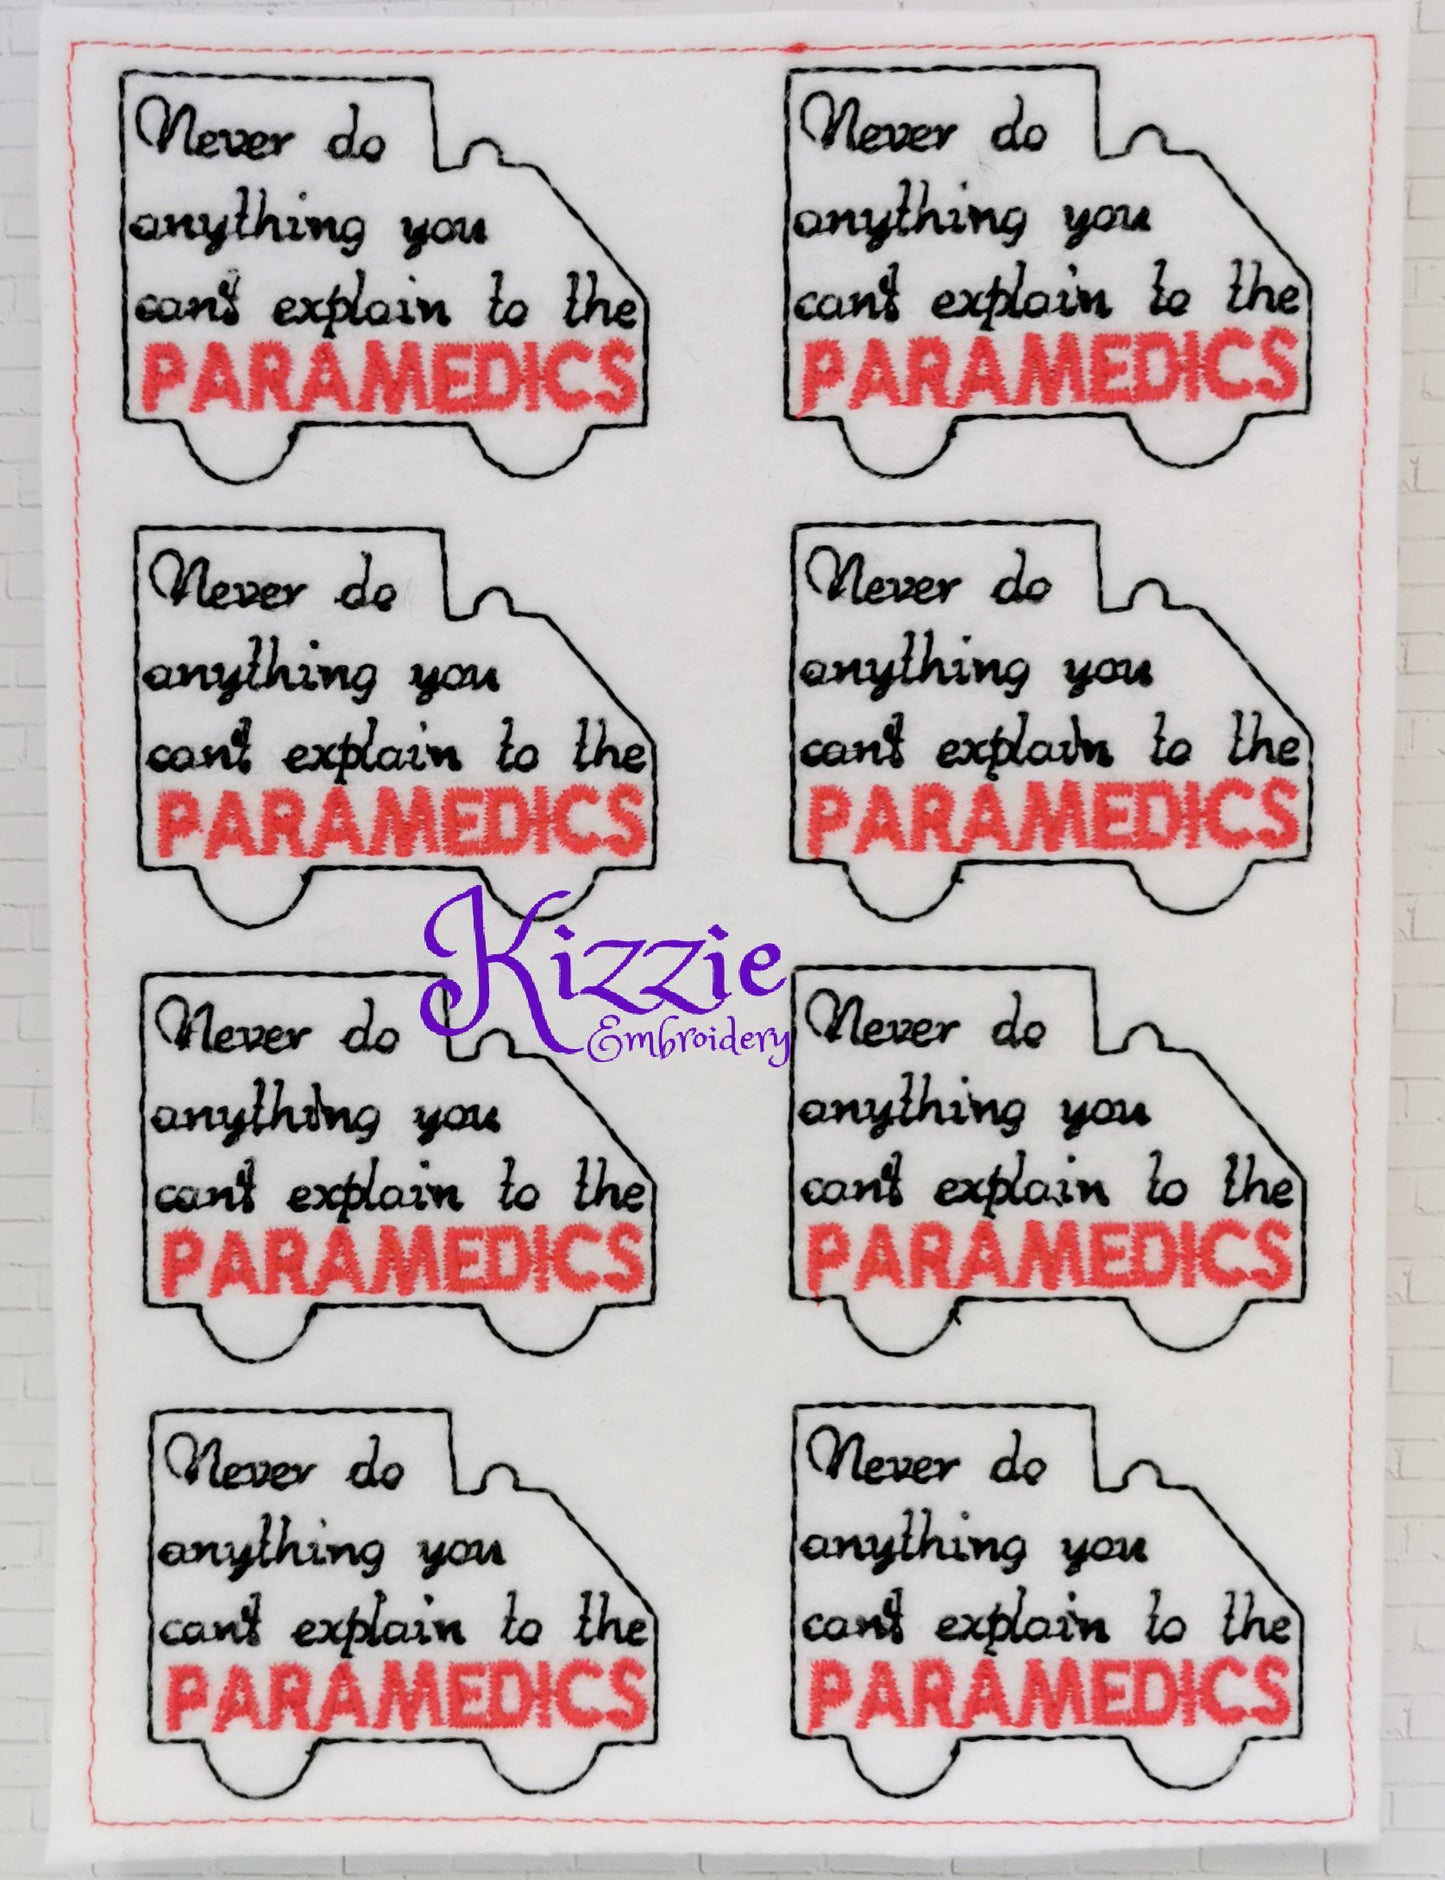 Never do
anything you
can't explain to the
PARAMEDICS
Never do
anything you
can't explain to the
PARAMEDICS
Never do
anything you
can't explain to the
PARAMEDICS
Never do
anything you
can't explain to the
PARAMEDICS
Kizzie
Embroidery
Never do
anything you
can't explain to the
PARAMEDICS
Never do
anything you
can't explain to the
PARAMEDICS
Never do
anything you
can't explain to the
PARAMEDICS
Never do
anything you
can't explain to the
PARAMEDICS